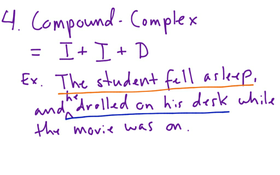 4. Compound-Complex
= I + I + D
Ex. The student fell asleep,
and he drolled on his desk while
the movie was on.